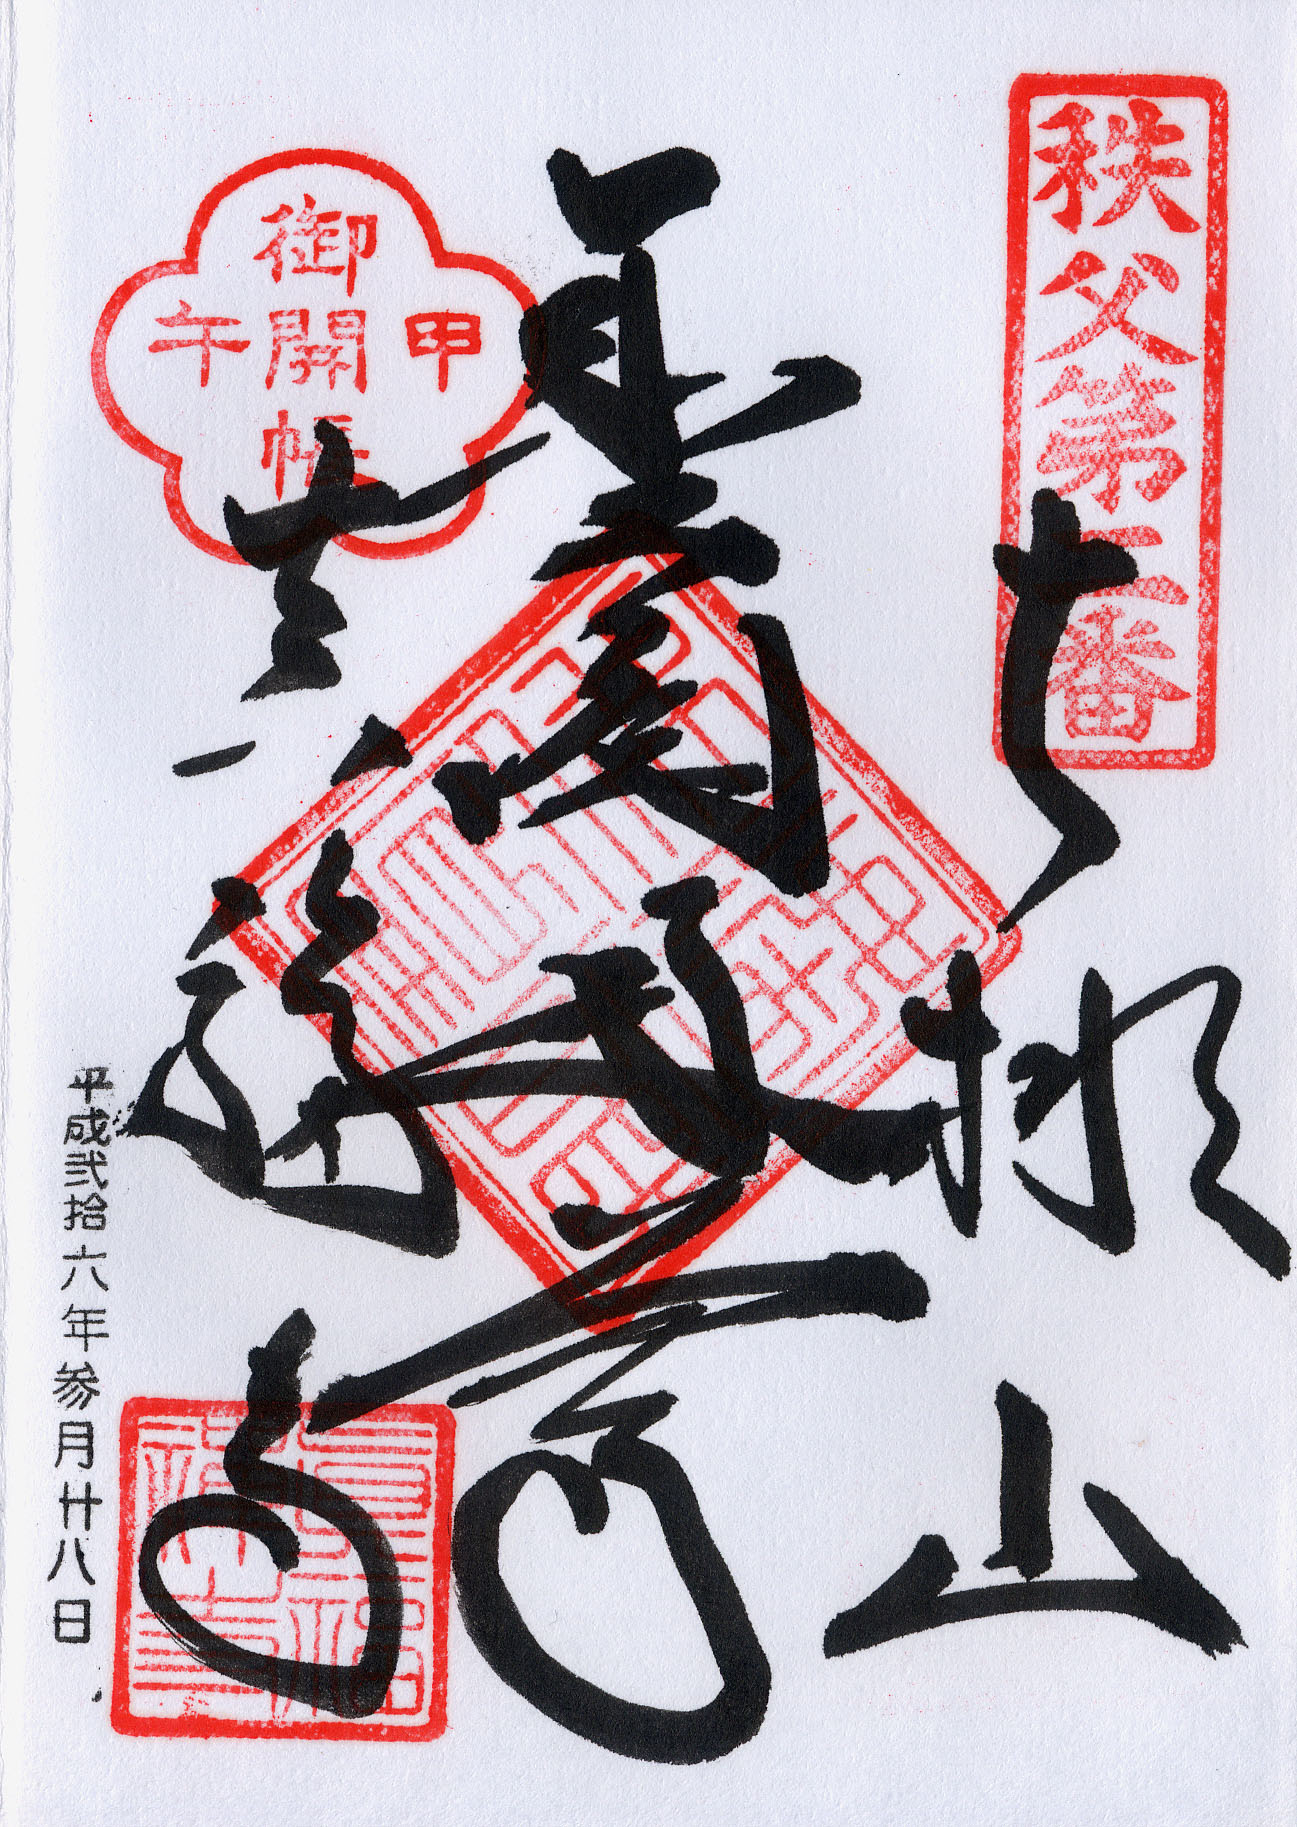 秩父第二番
大棚山
聖観世音
御開帳
甲午
真福寺
平成弐拾六年参月廿八日